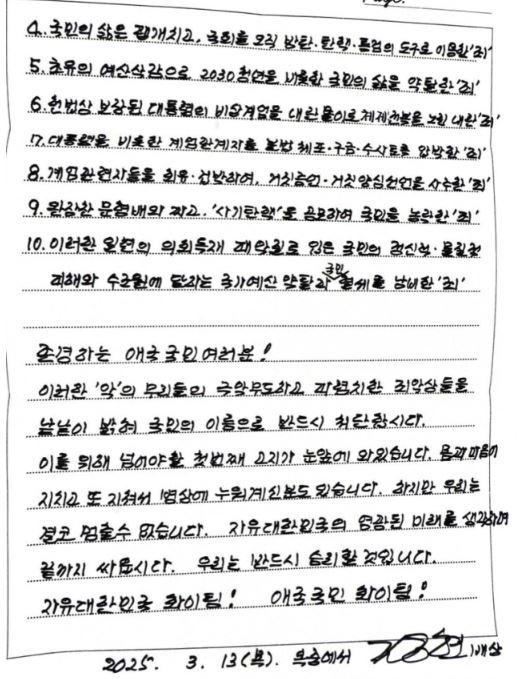 Page.
4. 국민의 삶은 팽개치고, 국회를 오직 방탄·탄핵·특검의 도구로 이용한 '죄'
5. 초유의 예산삭감으로 2030청년을 비롯한 국민의 삶을 약탈한 '죄'
6. 헌법상 보장된 대통령의 비상계엄을 내란몰이로 체제전복을 노린 내란 '죄'
7. 대통령을 비롯한 계엄관계자를 불법 체포·구금·수사토록 압박한 '죄'
8. 계엄관련자들을 회유·겁박하여, 거짓증언·거짓양심선언을 사주한 '죄'
9. 완장찬 문형배와 짜고, '사기탄핵'을 공모하여 국민을 농락한 '죄'
10. 이러한 일련의 의회독재 패악질로 입은 국민의 정신적·물질적
피해와 수조원에 달하는 국가예산 약탈과 국민혈세를 낭비한 '죄'
존경하는 애국국민여러분!
이러한 '악'의 무리들의 극악무도하고 파렴치한 죄악상들을
낱낱이 밝혀 국민의 이름으로 반드시 처단합시다.
이를 위해 넘어야할 첫번째 고지가 눈앞에 와있습니다. 몸과마음이
지치고 또 지쳐서 병상에 누워계신분도 있습니다. 하지만 우리는
결코 멈출수 없습니다. 자유대한민국의 영광된 미래를 생각하며
끝까지 싸웁시다. 우리는 반드시 승리할 것입니다.
자유대한민국 화이팅! 애국국민 화이팅!
2025. 3. 13(목). 옥중에서 김용현 배상